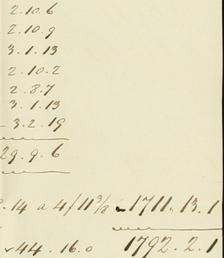 2.10.6
2.10.9
3.1.13
2.10.2
2.8.7
3.1.13
3.2.19
29.9.6
.14 a 4/11 3/8 1711.13.1
44.16.0 1792.2.1